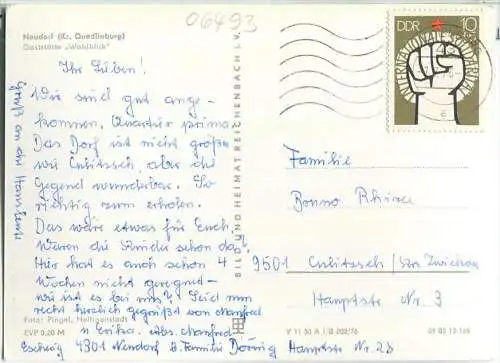 06493
Neudorf (Kr. Quedlinburg)
Gaststätte „Waldblick"
DDR 10
INTERNATIONALE SOLIDARITÄT
Ihr Lieben!
Wir sind gut ange-
kommen, Quartier prima.
Das Dorf ist nicht größer
wie Culitzsch, aber die
Gegend wunderbar. So
richtig zum erholen.
Das wäre etwas für Euch.
Waren die Kinder schon da?
Hier hat es auch schon 4
Wochen nicht geregnet -
wie ist es bei uns? Seid nun
recht herzlich gegrüßt von Manfred
u. Erika. Abs. Manfred
4301 Neudorf b. Familie Döring
Hauptstr. Nr. 28
Gruß an die Hausleute
BILD UND HEIMAT REICHENBACH I. V.
Familie
Benno
9501 Culitzsch / Krs. Zwickau
Hauptstr. Nr. 3
Foto: Pingel, Heiligenstadt
EVP 0,20 M
V 11 50 A 1/B 202/76
01 03 12 166